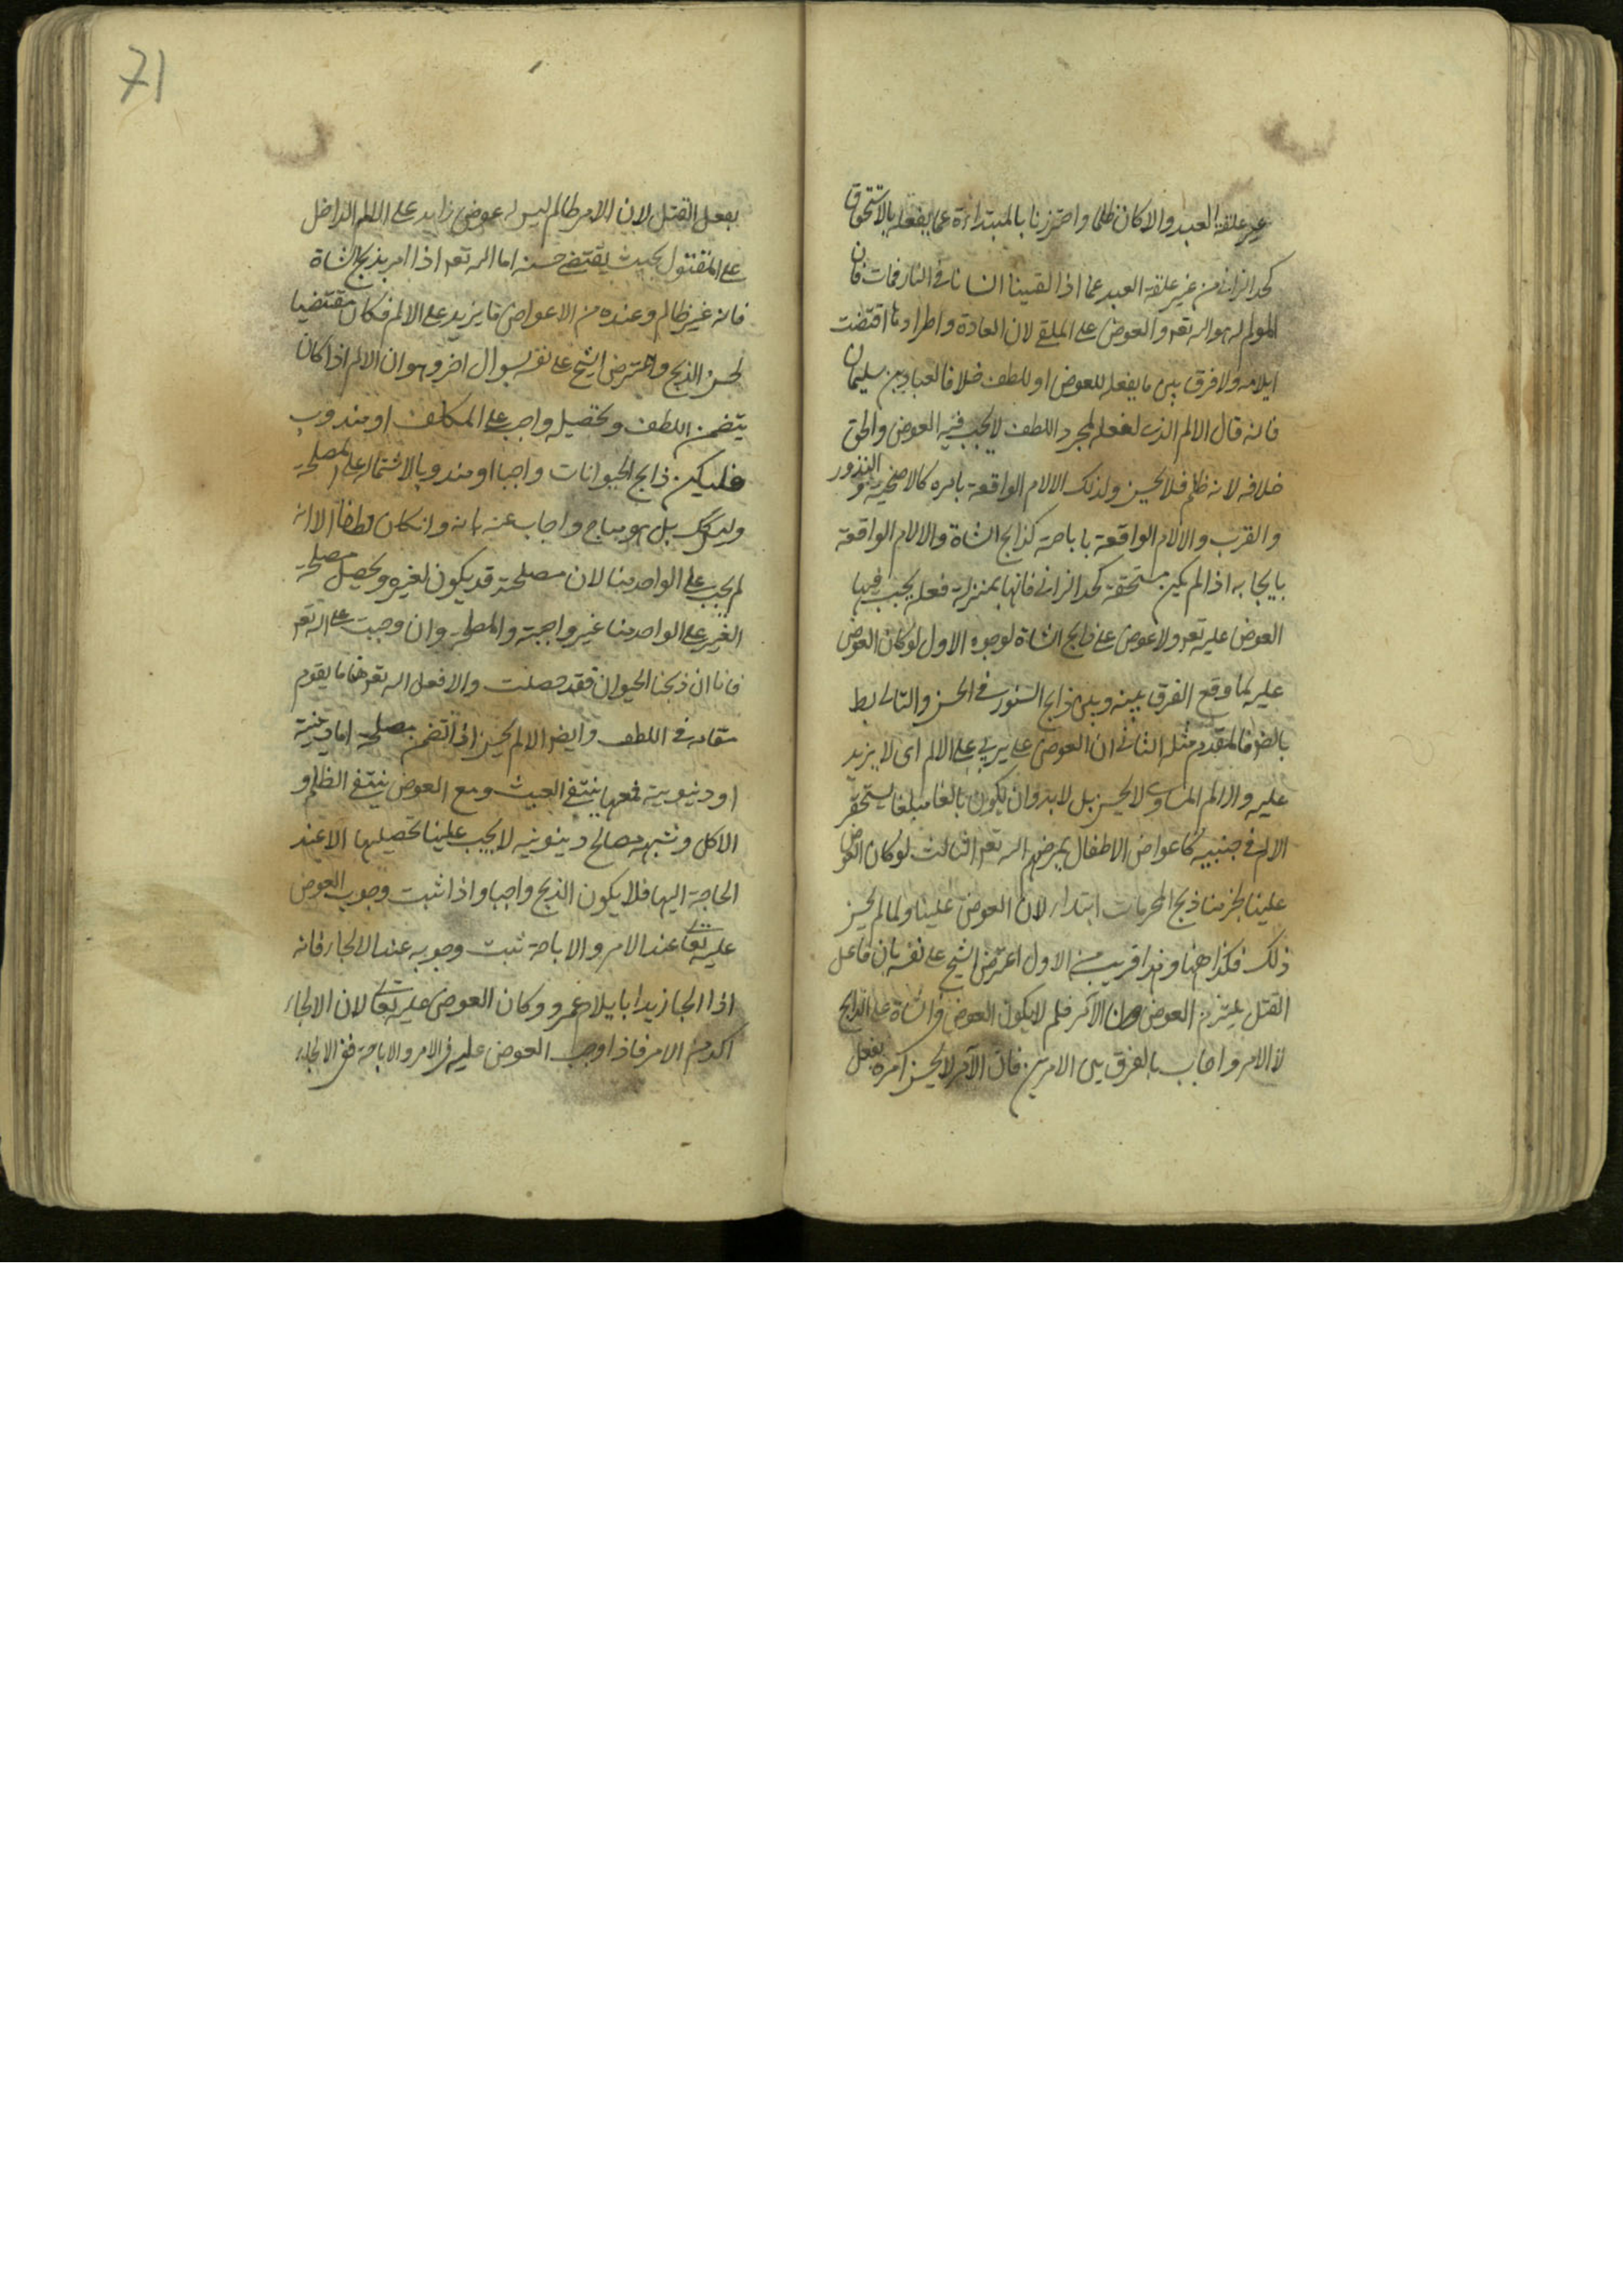 غير علقة العبد والا كان ظلما واحترزنا بالمبتداءة عما يفعله بالاستحقاق
كحد الزاني من غير علقة العبد عما اذا القينا انسانا في النار فمات فان
المولم له هو اله تعر والعوض على الملقي لان العادة واطرادها اقتضت
ايلامه ولا فرق بين ما يفعله للعوض او للطف خلافا لعباد بن سليمان
فانه قال الالم الذي يفعله لمجرد اللطف لا يجب فيه العوض والحق
خلافه لانه ظلم فلا يحسن ولذلك الالام الواقعة بامره كالاضحية والنذور
والقرب والالام الواقعة باباحته كذابح الشاة والالام الواقعة
بايجابه اذا لم يكن مستحقة كحد الزاني فانها بمنزلة فعله يجب فيها
العوض عليه تعر ولا عوض على ذابح الشاة لوجوه الاول لو كان العوض
عليه لما وقع الفرق بينه وبين ذابح السنور في الحسن والتالي بط
بالضر فالمقدم مثله الثاني ان العوض على يربي على الالم اى لا يزيد
عليه والالم المساوى لا يحسن بل لا بد وان يكون بالغا مبلغا يستحقر
الالم في جنبيه كاعواض الاطفال يمرضهم اله تعر الثالث لو كان العوض
علينا لحز منا ذبح المحرمات ابتداء لان العوض علينا ولما لم يحسن
ذلك فكذا ههنا وهذا قريب من الاول اعترض الشيخ على نفسه بان فاعل
القتل يلتزم العوض دون الآمر فلم لا يكون العوض في الشاة على الذابح
لا الامر واجاب بالفرق بين الامرين فان الآمر لا يحسن امره بفعل
71
بفعل القتل لان الامر ظالم ليس له عوض زايد على الالم الداخل
على المقتول بحيث يقتضى حسنه اما اله تعر اذا امر بذبح الشاة
فانه غير ظالم وعنده من الاعواض ما يزيد على الالم فكان مقتضيا
لحسن الذبح واعترض الشيخ على نفسه بسوال اخر وهو ان الالم اذا كان
يتضمن اللطف وتحصيله واجب على المكلف او مندوب
فليكن ذابح الحيوانات واجبا او مندوبا لاشتماله على المصلحة
وليس كك بل هو مباح واجاب عنه بانه وان كان لطفا الا انه
لم يجب على الواحد منا لان مصلحته قد يكون لغيره وتحصيل مصلحة
الغير على الواحد منا غير واجبة والمصلحة وان وجبت على اله تعر
فانا ان ذبحنا الحيوان فقد حصلت والا فعل اله تعر هنا ما يقوم
مقامه في اللطف وايضا الالم يحسن اذا تضمن مصلحة اما دينية
او دنيوية فمعها ينتفى العبث ومع العوض ينتفى الظلم و
الاكل وشبهه مصالح دنيوية لا يجب علينا تحصيلها الا عند
الحاجة اليها فلا يكون الذبح واجبا واذا ثبت وجوب العوض
عليه تعالى عند الامر والاباحة ثبت وجوبه عند الالجاء فانه
اذا الجا زيدا بايلام عمرو وكان العوض عليه تعالى لان الالجاء
اكد من الامر فاذا وجب العوض عليه في الامر والاباحة ففي الالجاء